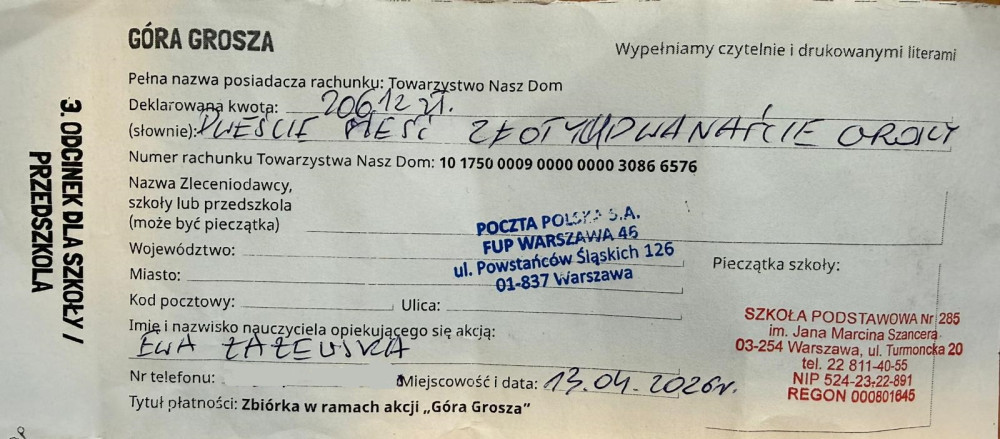 3. ODCINEK DLA SZKOŁY /
PRZEDSZKOLA
GÓRA GROSZA
Wypełniamy czytelnie i drukowanymi literami
Pełna nazwa posiadacza rachunku: Towarzystwo Nasz Dom
Deklarowana kwota: 206,12 zł.
(słownie): DWEŚCIE SZEŚĆ ZŁOTYCH DWANAŚCIE GROSZY
Numer rachunku Towarzystwa Nasz Dom: 10 1750 0009 0000 0000 3086 6576
Nazwa Zleceniodawcy,
szkoły lub przedszkola
(może być pieczątka)
POCZTA POLSKA S.A.
FUP WARSZAWA 46
ul. Powstańców Śląskich 126
01-837 Warszawa
Województwo:
Miasto:
Kod pocztowy: Ulica:
Pieczątka szkoły:
SZKOŁA PODSTAWOWA Nr 285
im. Jana Marcina Szancera
03-254 Warszawa, ul. Turmoncka 20
tel. 22 811-40-55
NIP 524-23-22-891
REGON 000801645
Imię i nazwisko nauczyciela opiekującego się akcją:
EWA
Nr telefonu: Miejscowość i data: 13.04.2026r.
Tytuł płatności: Zbiórka w ramach akcji „Góra Grosza”